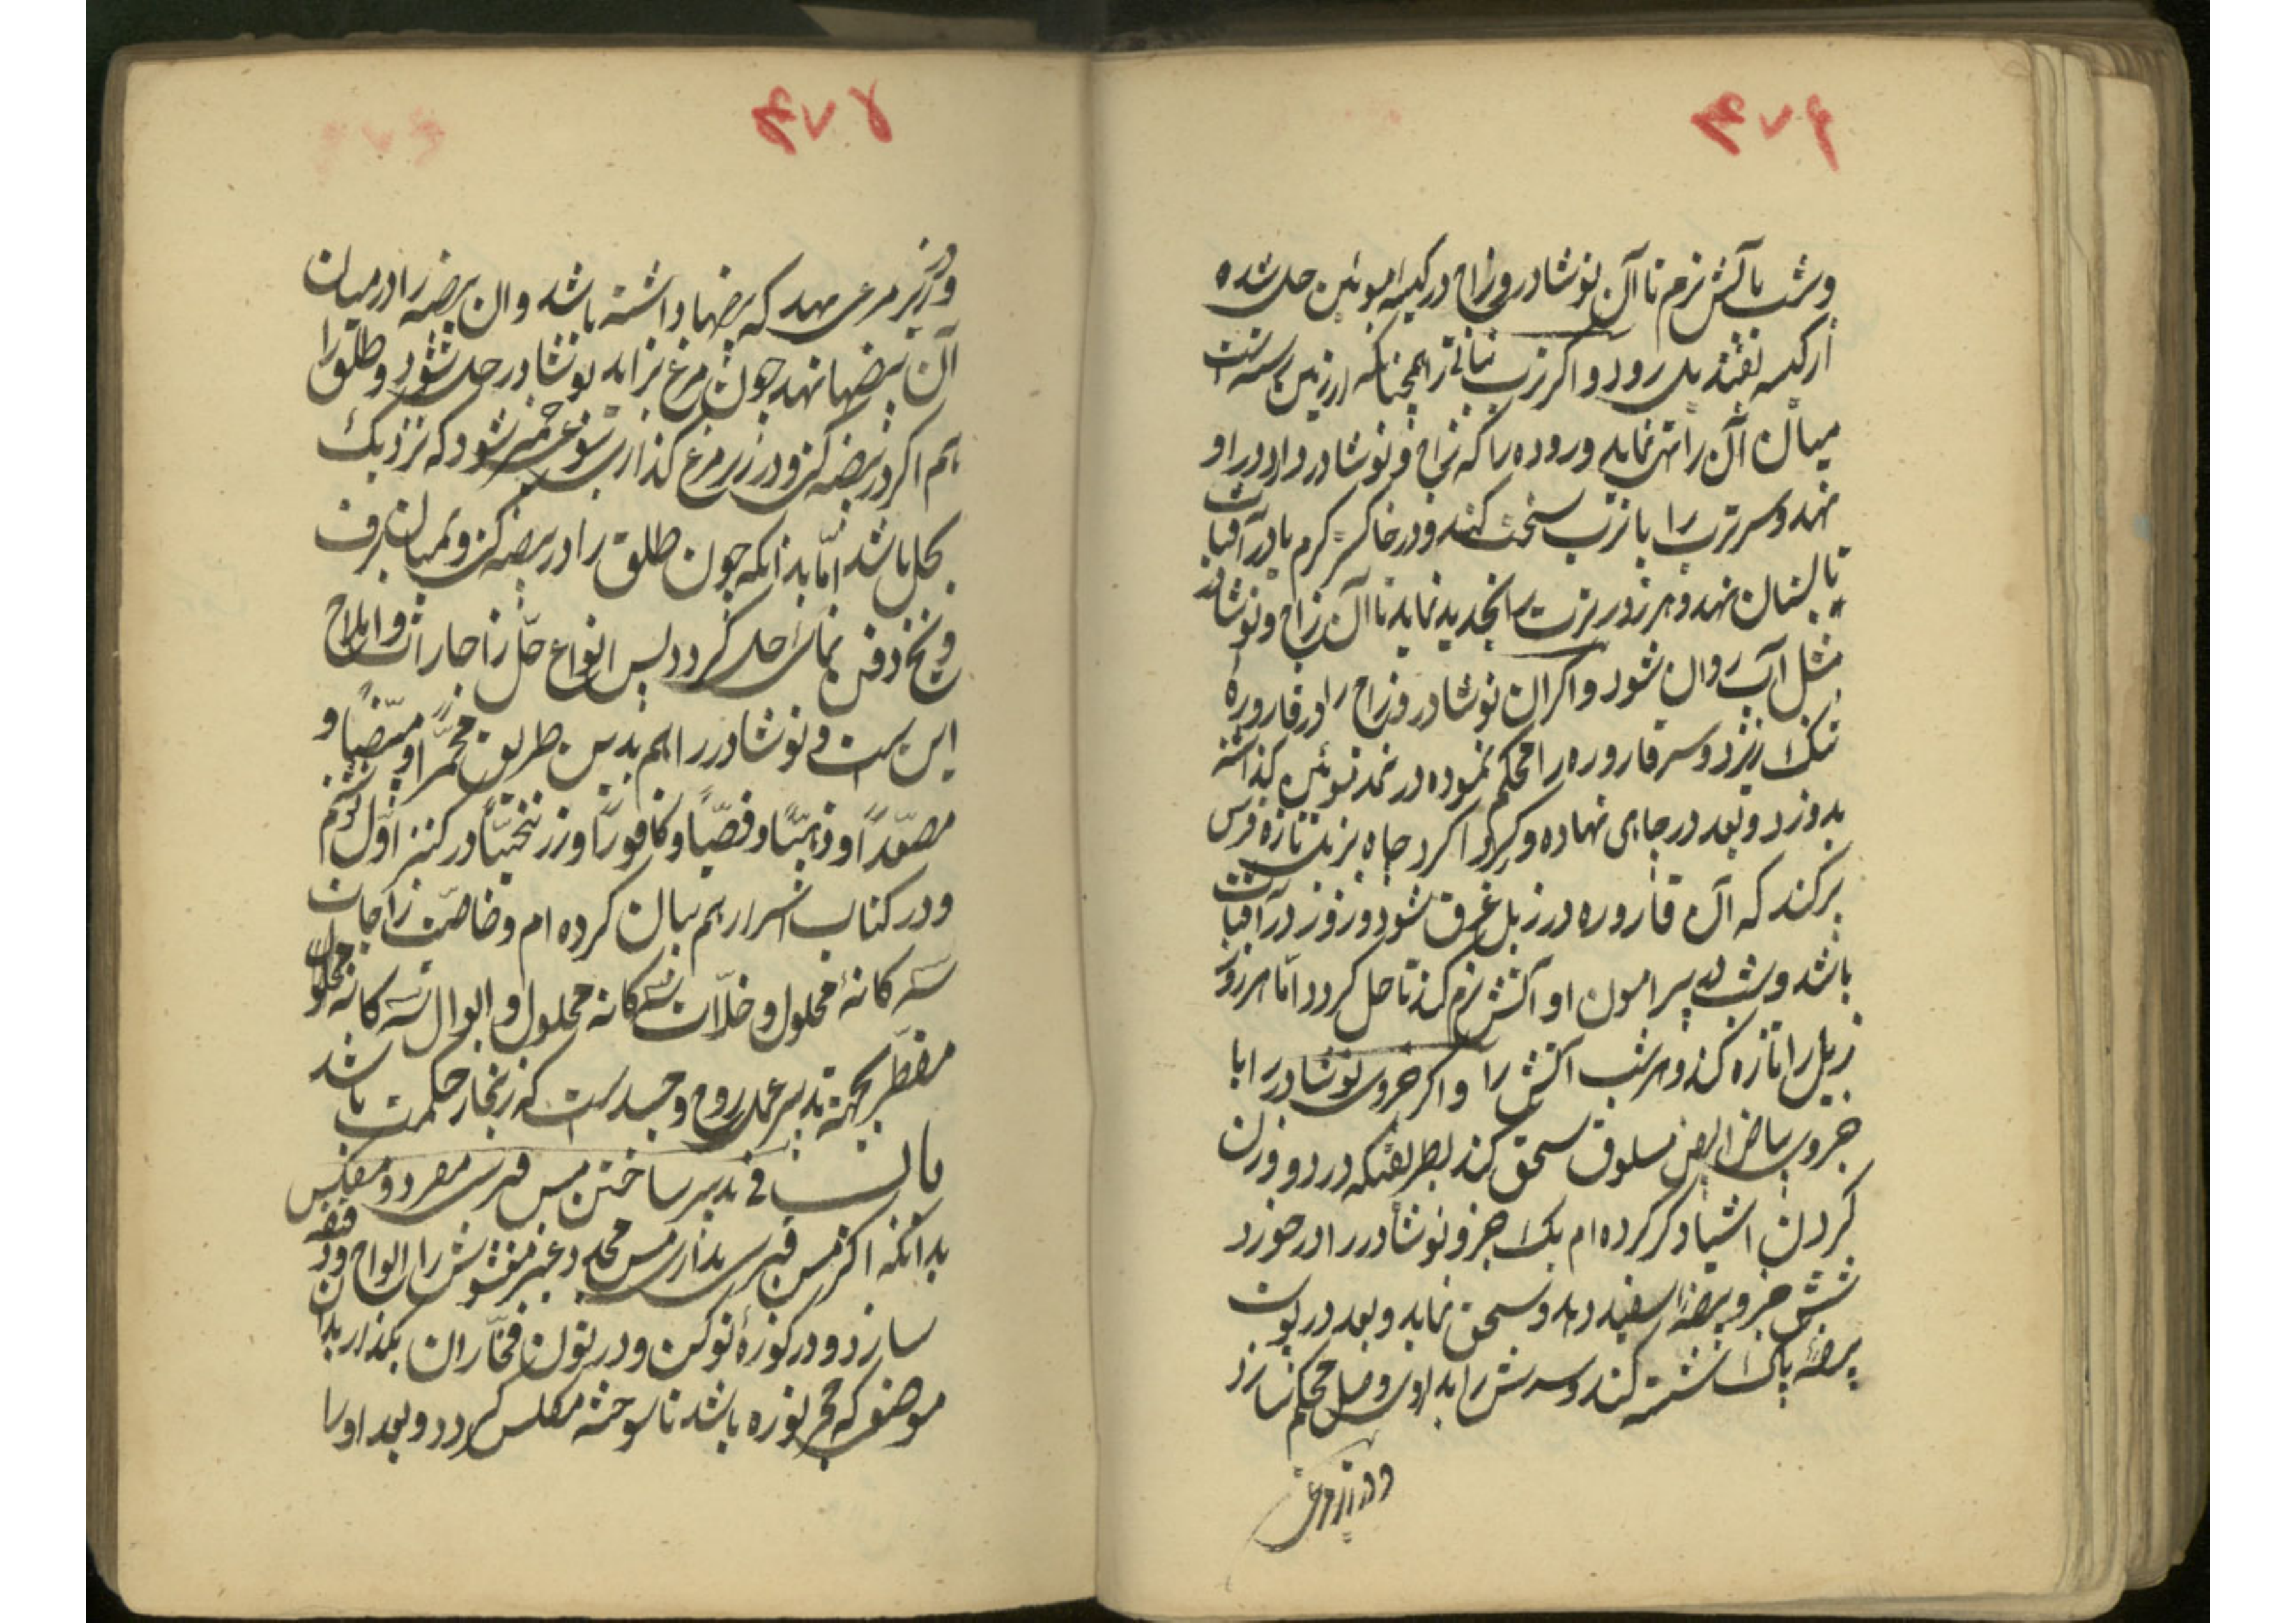 ۴۷۴
وشب باتش نرم تا آن نوشادر وزاج در کیسه موئین حل شده
از کیسه نقبه بل رود واکر ترب نباتی را همچنانکه از زمین رسته است
میان آن را تهی نماید وروده را که زاج و نوشادر دارد در او
نهد و سر ترب را با ترب سخت کند و در خاکستر کرم یا در آفتاب
تابستان نهد و هر روز ترب را تجدید نماید تا آن زاج ونوشادر
مثل آب روان شود واکر ان نوشادر وزاج را در قاروره
تنک ریزد وسر قاروره را محکم نموده در نمد موئین گذاشته
بدوزد و بعد در جای نهاده و گرداگرد چاه بزبل تازه فرس
برکند که آن قاروره در زبل غرق شود و روز در آفتاب
باشد وشب پیرامون او آتش نرم کند تا حل کردد امّا هر روز
زبل را تازه کند وهر شب آتش را واکر جزوی نوشادر را با
جزوی بیاض البیض مسلوق سحق کند بطریقیکه در دو وزن
کردن اشیا ذکر کرده ام یک جزو نوشادر را در خورد
شش جزو بیضه سفید دهد وسحق نماید وبعد در پوست
بیضه پاک شسته کند وسرش را بداروی وصل محکم سازد
۴۷۵
ودر زیر مرغی نهد که بیضها داشته باشد وان بیضه را در میان
آن بیضها نهد چون مرغ بزاید نوشادر حل شود وطلق را
هم اکر در بیضه کنی و در زیر مرغ گذاری نوعی شود که نزدیک
بحل باشد امّا بدانکه چون طلق را در بیضه کنی و بمیان
دفن نمائی حل کردد پس انواع حلّ زاجات واملاح
این است ونوشادر را هم بدین طریق محمّراً و مبیّضاً و
مصعّداً و ذهبیّاً و فضیّاً و کافوریّاً وزرنیخیّاً در کنز اوّل
ودر کتاب اسرار هم بیان کرده ام وخاصیّت زاجات
سه کانهٔ محلول وخلّات سه کانه محلول و ابوال سه کانه محلول
مقطّر بجهة تدبیر عمل روح و جسد است که زنجار حکمت باشد
باب فی تدبیر ساختن مس قبرسی مفرد و مفلس
بدانکه اکر مس قبرسی نداری مس محلی وغیر مغشوش را الواح
سازد ودر کوزهٔ نو کن ودر تون فخّاران بکذار
موضعی که حجر نوره باشد تا سوخته مکلس کردد وبعد او را